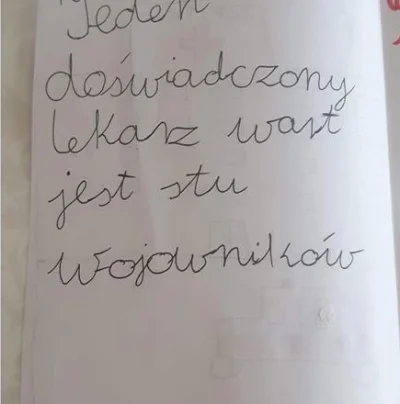 "Jeden
doświadczony
lekarz wart
jest stu
wojowników